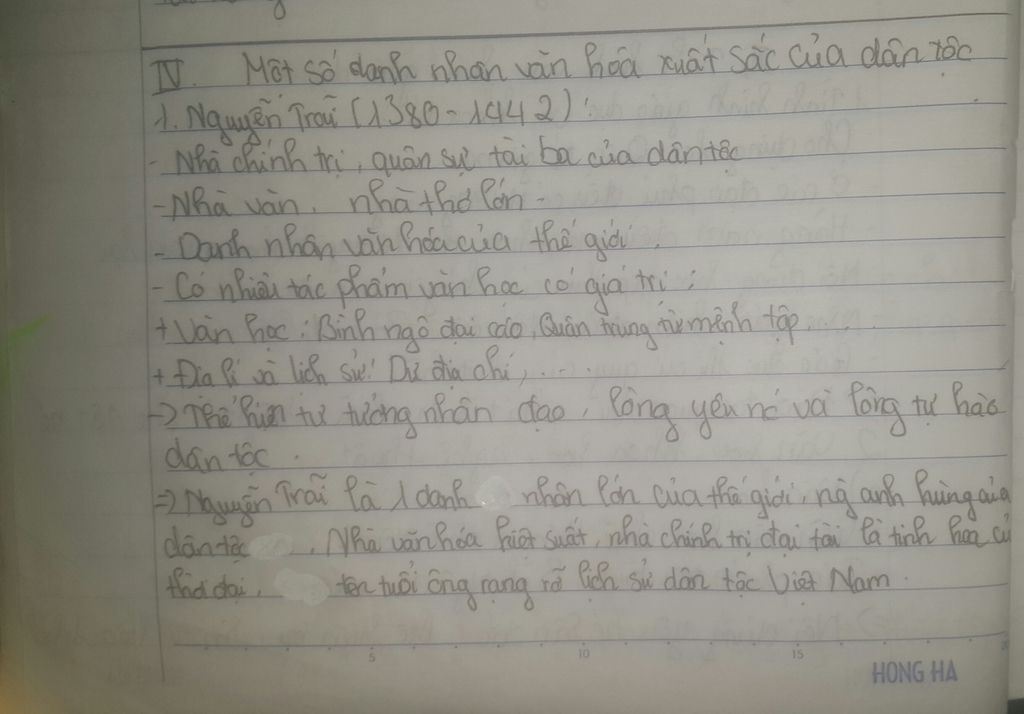 IV. Một số danh nhân văn hoá xuất sắc của dân tộc
1. Nguyễn Trãi (1380-1442):
- Nhà chính trị, quân sự tài ba của dân tộc
- Nhà văn, nhà thơ lớn.
- Danh nhân văn hóa của thế giới.
- Có nhiều tác phẩm văn học có giá trị:
+ Văn học: Bình ngô đại cáo, Quân trung từ mệnh tập...
+ Địa lí và lịch sử: Dư địa chí,...
-> Thể hiện tư tưởng nhân đạo, lòng yêu nc và lòng tự hào
dân tộc.
=> Nguyễn Trãi là 1 danh nhân lớn của thế giới, ng anh hùng của
dân tộc, Nhà văn hóa kiệt suất, nhà chính trị đại tài là tinh hoa củ
thời đại, tên tuổi ông rạng rỡ lịch sử dân tộc Việt Nam.
5 10 15
HONG HA